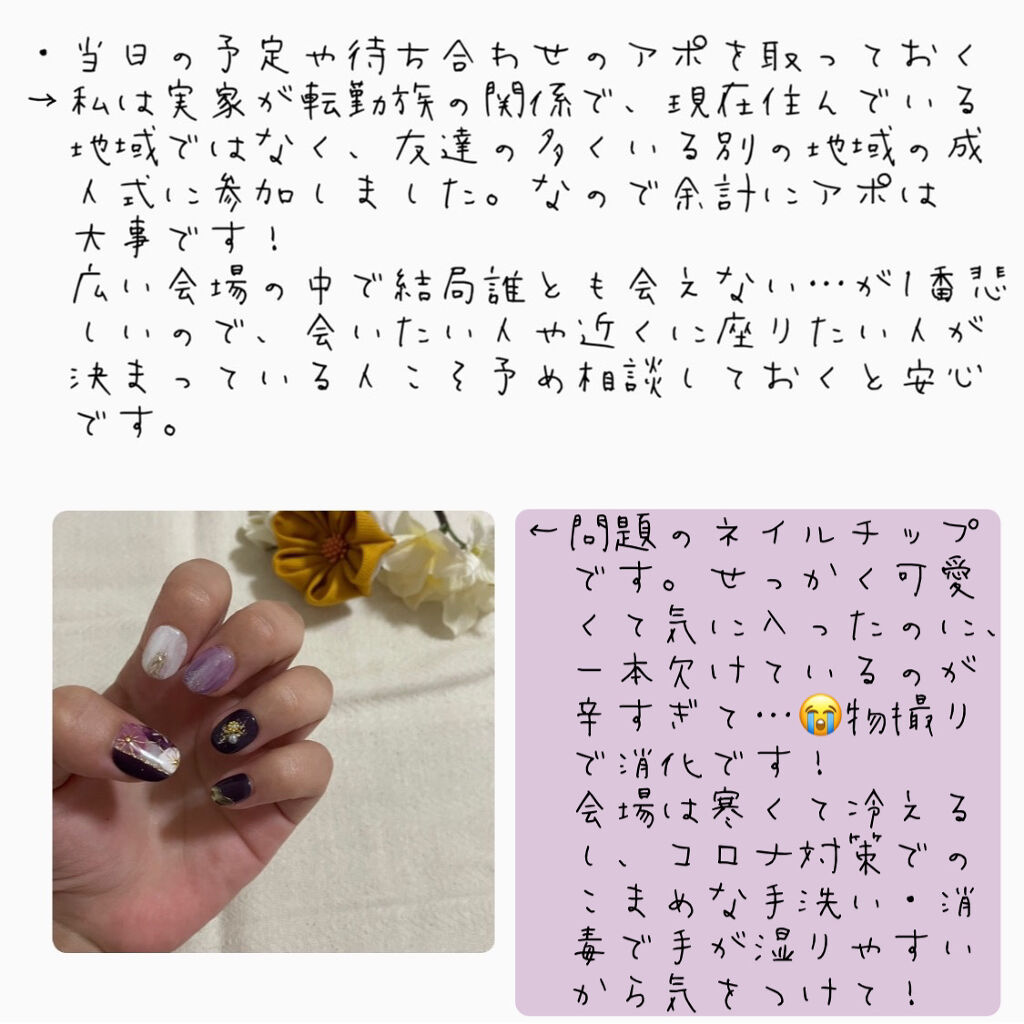 ・当日の予定や待ち合わせのアポを取っておく
→私は実家が転勤族の関係で、現在住んでいる
地域ではなく、友達の多くいる別の地域の成
人式に参加しました。なので余計にアポは
大事です！
広い会場の中で結局誰とも会えない…が1番悲
しいので、会いたい人や近くに座りたい人が
決まっている人こそ予め相談しておくと安心
です。
←問題のネイルチップ
です。せっかく可愛
くて気に入ったのに、
一本欠けているのが
辛すぎて…😭物撮り
で消化です！
会場は寒くて冷える
し、コロナ対策での
こまめな手洗い・消
毒で手が湿りやすい
から気をつけて！